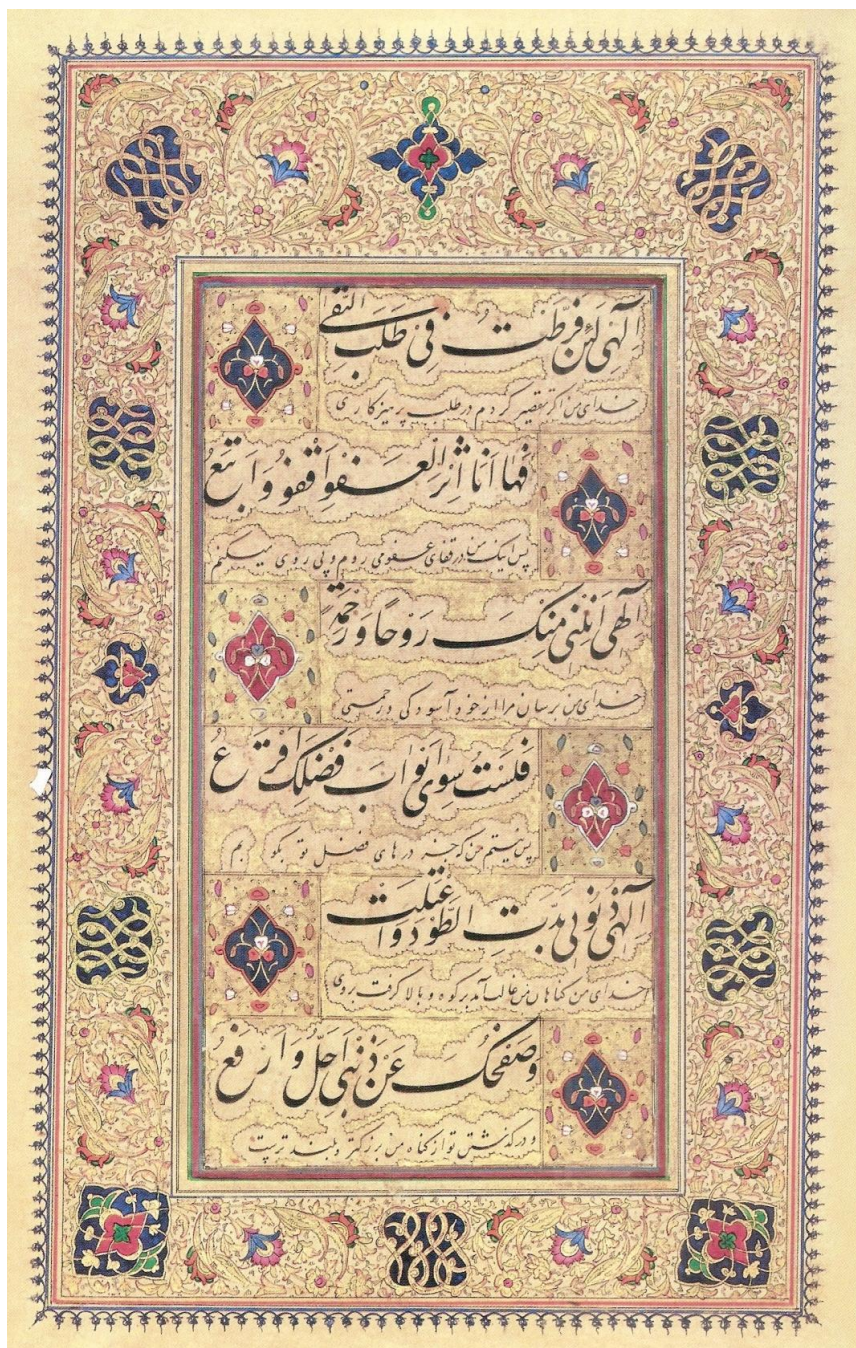 الهی لئن فرطت فی طلب التقی
خدای من اکر تقصیر کردم در طلب پرهیزکاری
فها انا اثر العفو اقفو و اتبع
پس اینک من در قفای عفو می روم و پی روی میکنم
الهی انلنی منک روحا و رحمة
خدای من برسان مرا از خود آسودکی و رحمتی
فلست سوی ابواب فضلک اقرع
پس نیستم من که جز درهای فضل تو بکوبم
الهی ذنوبی بذت الطود و اعتلت
خدای من کناهان من غالب آمد بر کوه و بالا کرفت بروی
و صفحک عن ذنبی اجل و ارفع
و درکذشتن تو از کناه من بزرکتر و بلند تر است